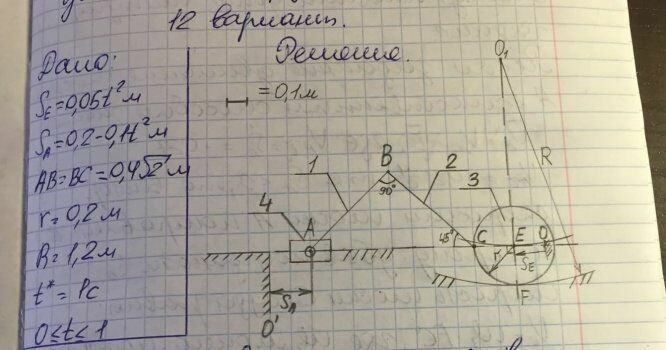 12 вариант.
Дано:
Решение.
S_E = 0,05t² м
= 0,1м
S_A = 0,2 - 0,1t² м
AB = BC = 0,4√2 м
r = 0,2 м
R = 1,2 м
t* = 1 с
0 ≤ t < 1
O₁
R
1
B
2
90°
3
4
A
45°
C
E
O
r
S_E
S_A
F
O'